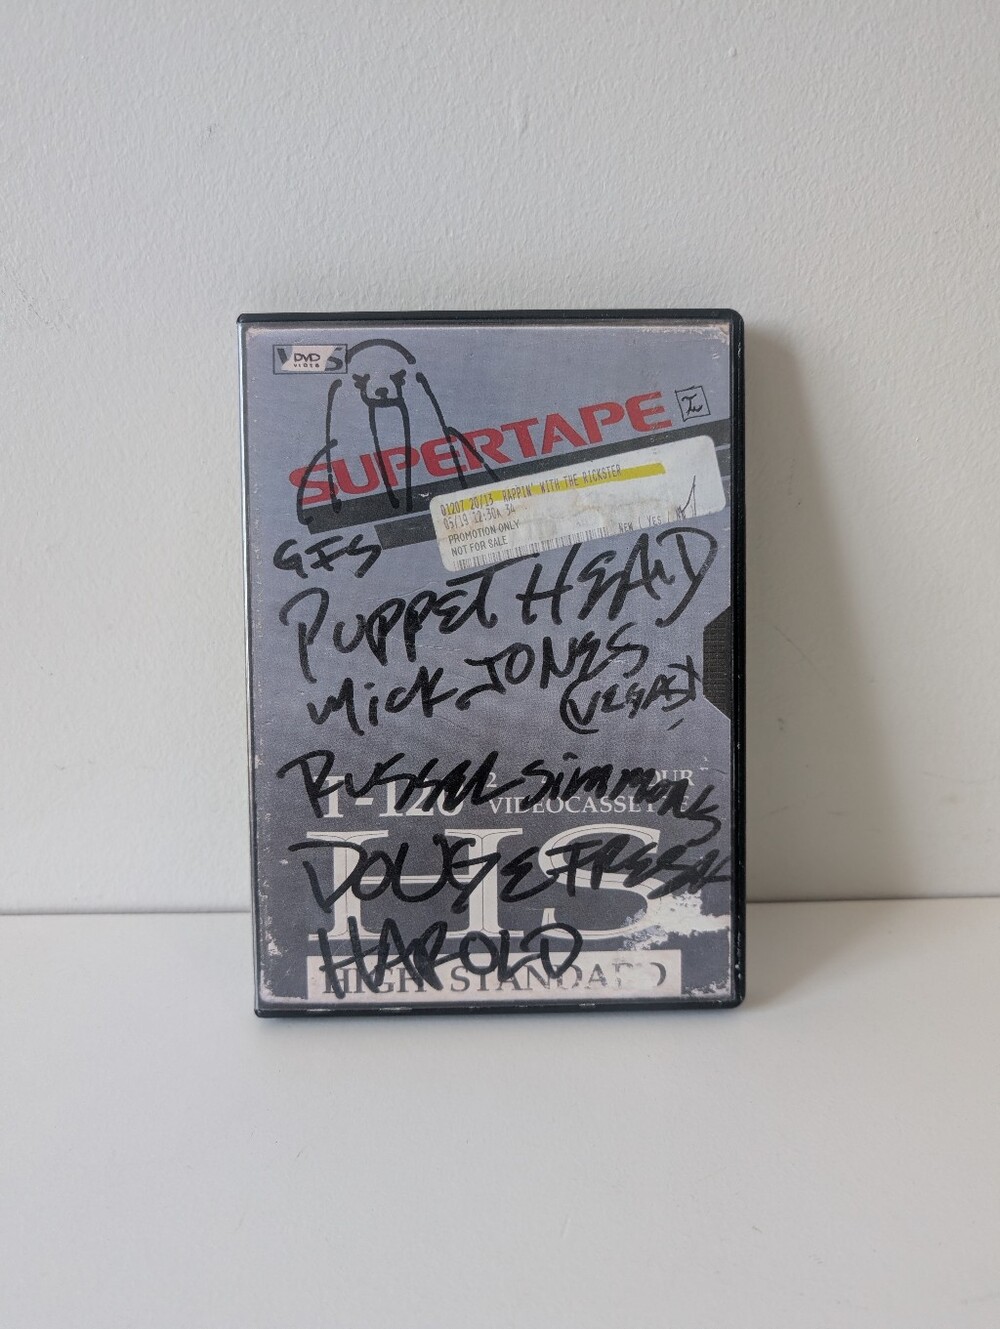 DVD
VIDEO
SUPERTAPE
01207 20/13 RAPPIN' WITH THE RICKSTER
05/19 12:30A 34
PROMOTION ONLY
NOT FOR SALE
NEW / YES /
GFS
PUPPET HEAD
MICK JONES
(VEGAS)
RUSSEL SIMMONS
T-120
VIDEOCASSETTE
DOUG E FRESH
HS
HAROLD
HIGH STANDARD